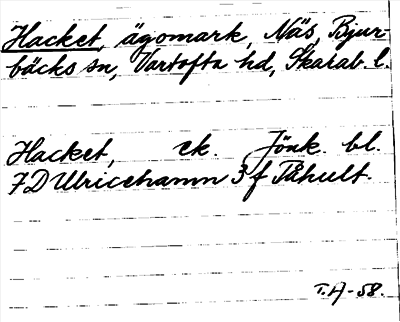 Hacket, ägomark, Näs, Bjur-
bäcks sn, Vartofta hd, Skarab. l.
Hacket, ek. Jönk. bl.
7D Ulricehamn 3 f Påhult.
T.A-58.